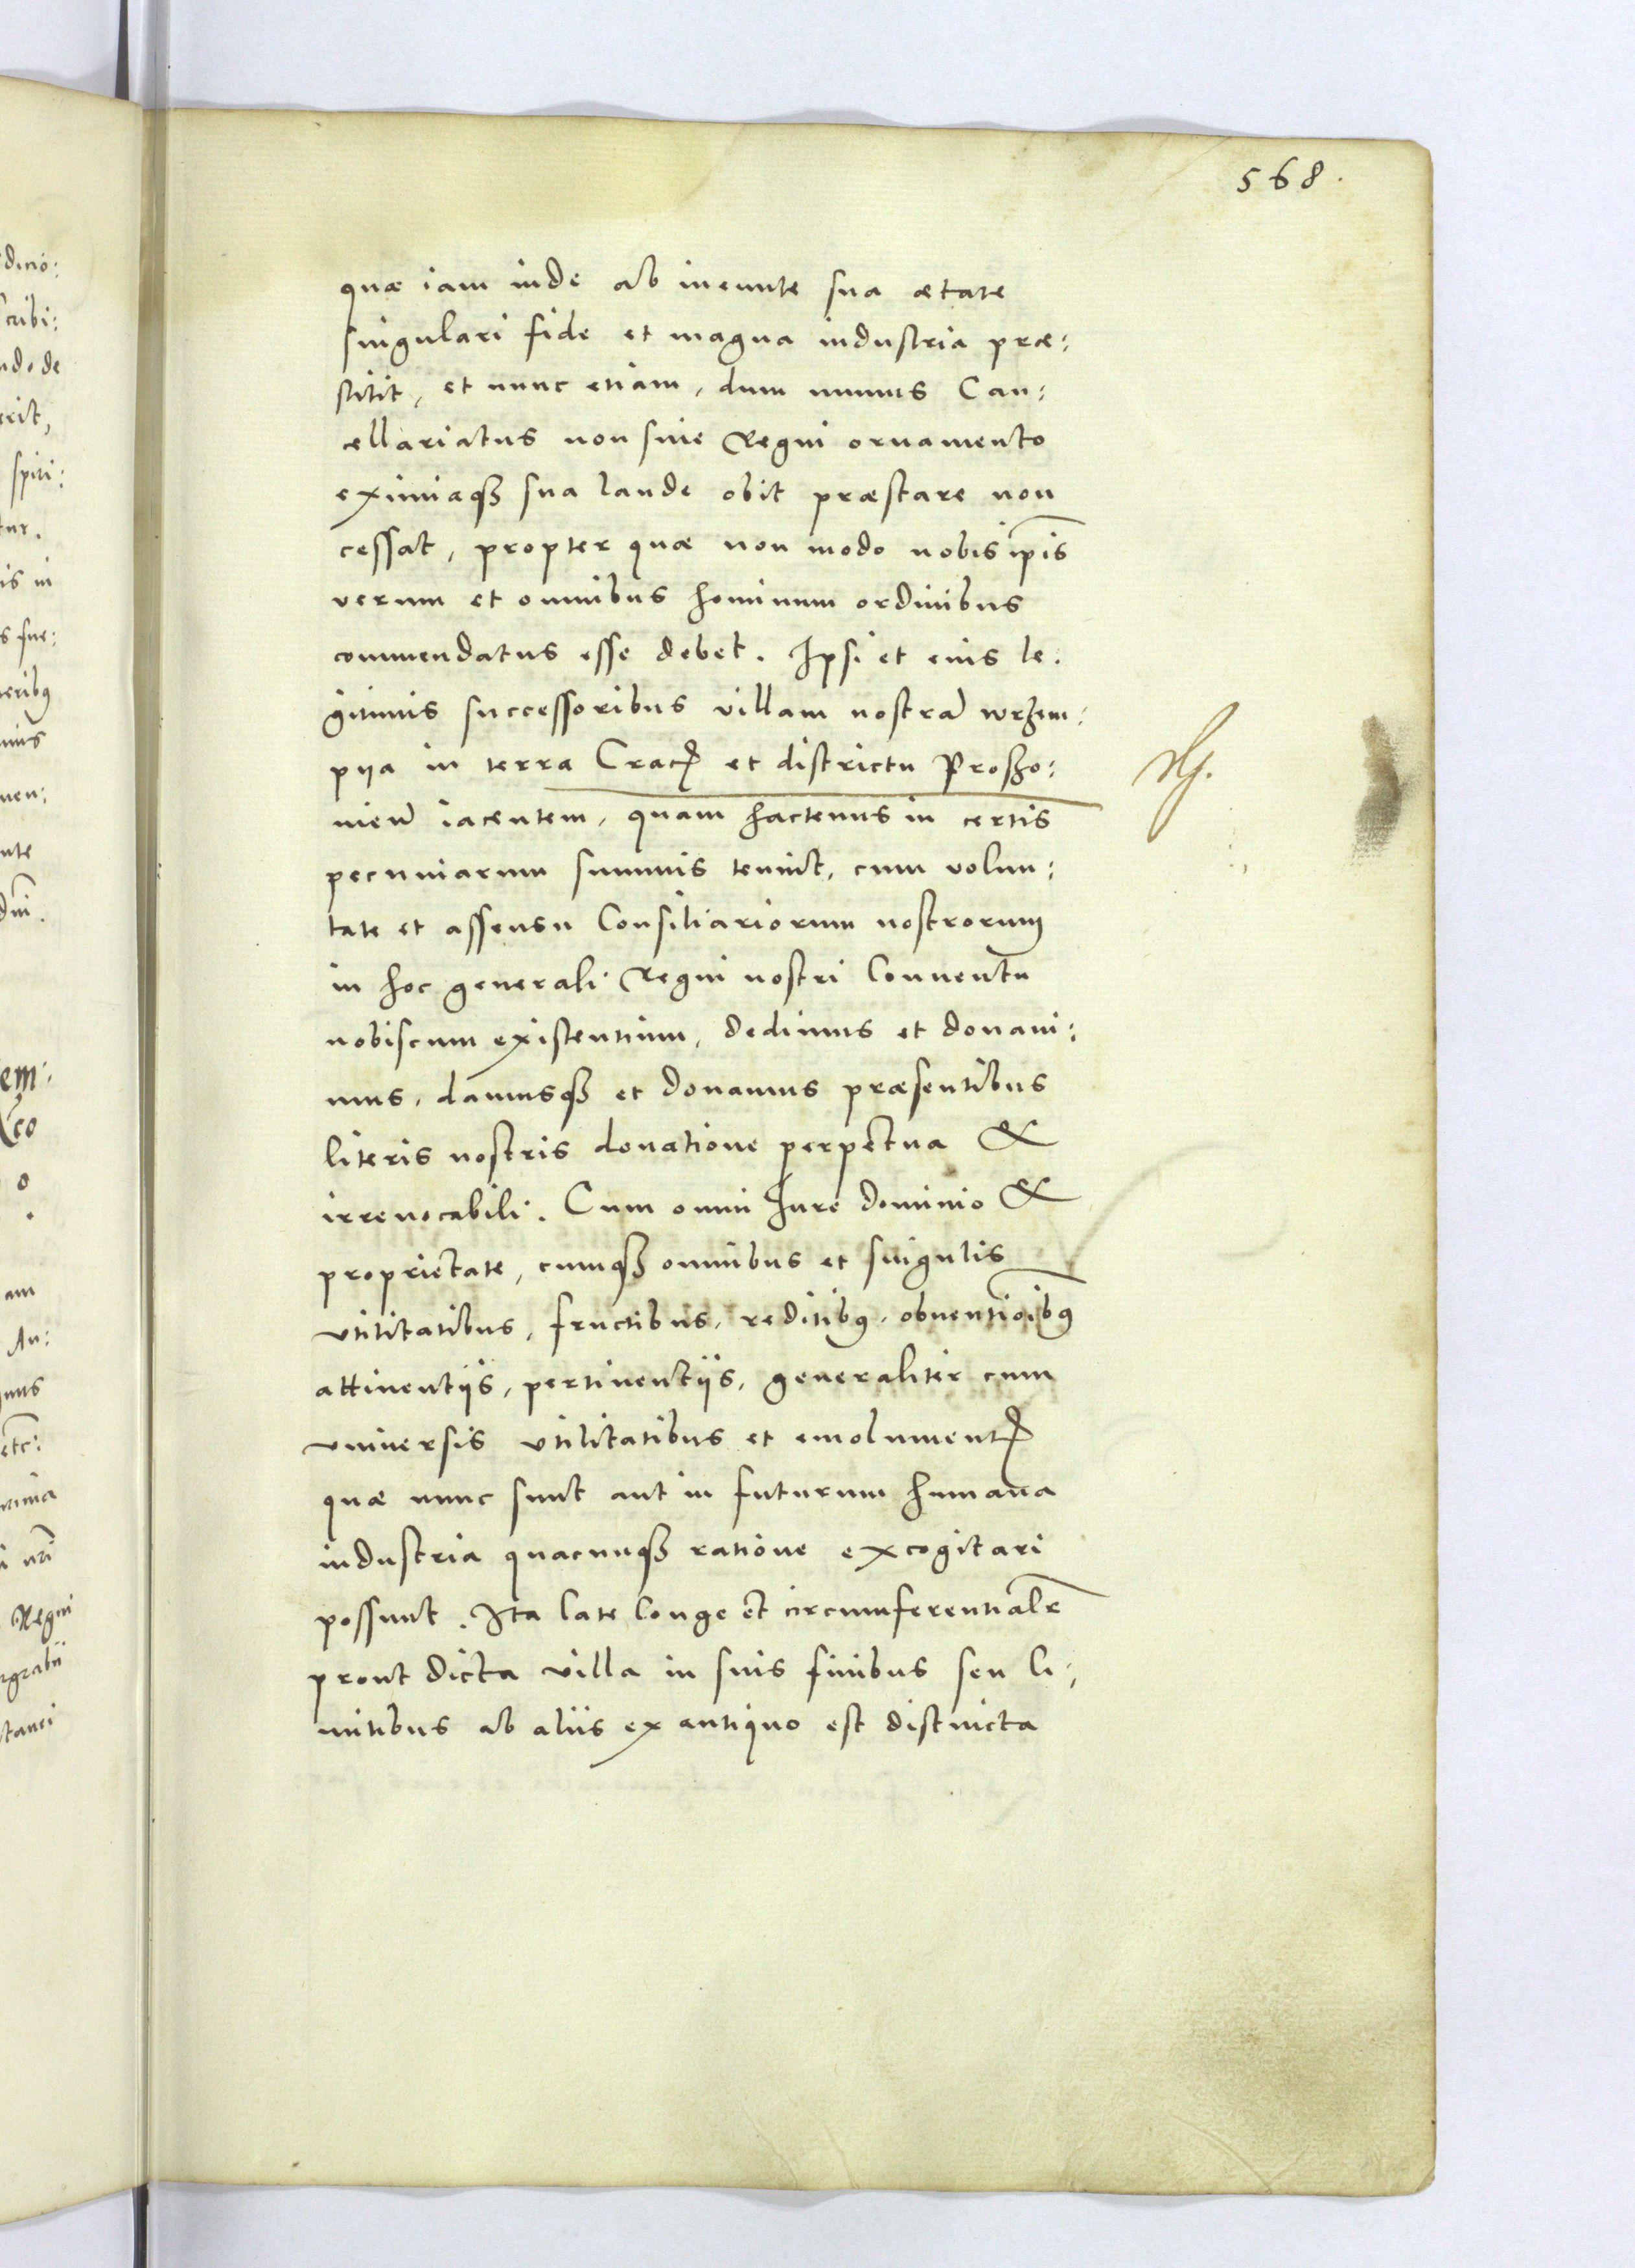 568.
quæ iam inde ab ineunte sua ætate
singulari fide et magna industria præ:
stitit, et nunc etiam, dum munus Can:
cellariatus non sine Regni ornamento
eximiaqȝ sua laude obit præstare non
cessat, propter quæ non modo nobis ip̄is
verum et omnibus hominum ordinibus
commendatus esse debet. Ipsi et eius le:
gitimis successoribus villam nostrā wrzem:
pija in terra Crac̄ et districtu Proszo:
vień iacentem, quam hactenus in certis
pecuniarum summis tenuit, cum volun:
tate et assensu Consiliariorum nostrorum
in hoc generali Regni nostri Conuentu
nobiscum existentium, dedimus et donaui:
mus, damusqȝ et donamus præsentibus
literis nostris donatione perpetua &
irreuocabili. Cum omni Iure dominio &
proprietate, cumqȝ omnibus et singulis
vtilitatibus, fructibus, reditibꝰ, obuentioībꝰ
attinentijs, pertinentijs, generaliter cum
vniuersis vtilitatibus et emolument̄
quæ nunc sunt aut in futurum humana
industria quacunqȝ ratione excogitari
possunt. Ita late longe et circumferentialr̄
prout dicta villa in suis finibus seu li:
mitibus ab aliis ex antiquo est distincta